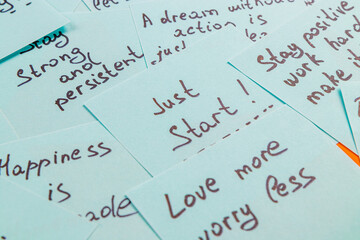 A dream without
action is
just
Stay
Strong
and
persistent
Stay positive
work hard
make it
Just
Start!
Happiness
is
Love more
worry less